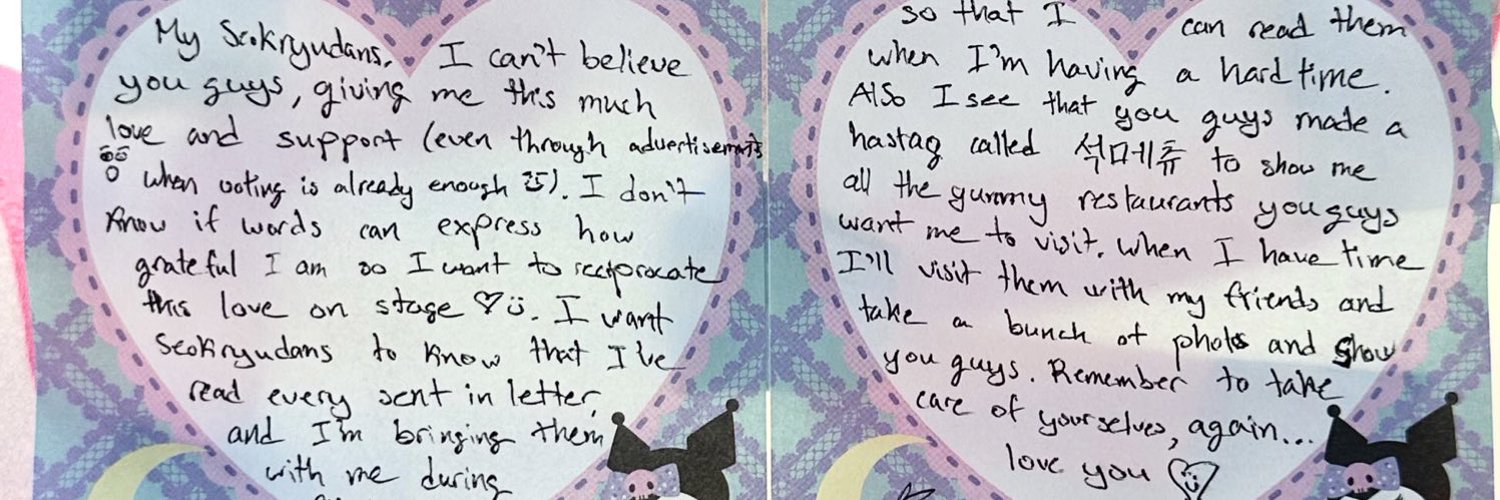 My Seokryudans, I can't believe
you guys, giving me this much
love and support (even through advertisements
when voting is already enough). I don't
know if words can express how
grateful I am so I want to reciprocate
this love on stage ♡ü. I want
Seokryudans to know that I've
read every sent in letter,
and I'm bringing them
with me during
so that I can read them
when I'm having a hard time.
Also I see that you guys made a
hastag called 석메츄 to show me
all the yummy restaurants you guys
want me to visit. When I have time
I'll visit them with my friends and
take a bunch of photos and show
you guys. Remember to take
care of yourselves, again...
love you